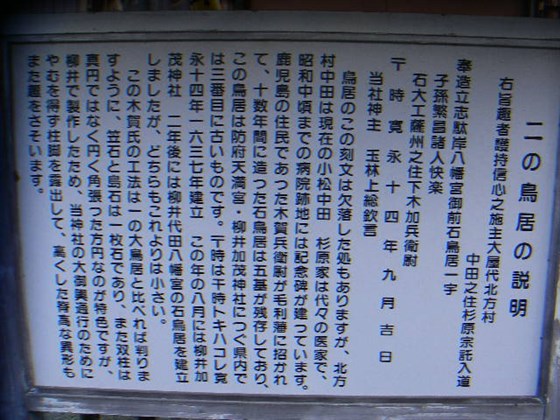 二の鳥居の説明
右旨趣者護持信心之施主大屋代北方村
中田之住杉原宗託入道
奉造立志駄岸八幡宮御前石鳥居一字
子孫繁昌諸人快楽
石大工薩州之住下木加兵衛尉
〒時寛永十四年九月吉日
当社神主 玉林上総欽言
鳥居のこの刻文は欠落した処もありますが、北方
村中田は現在の小松中田 杉原家は代々の医家で、
昭和中頃までの病院跡地には記念碑が建っています。
鹿児島の住民であった木賀兵衛尉が毛利藩に招かれ
て、十数年間に造った石鳥居は五基が残存しており、
この鳥居は防府天満宮・柳井加茂神社につぐ県内で
は三番目に古いものです。〒時は干時トキハコレ寛
永十四年一六三七年建立 この年の八月には柳井加
茂神社 二年後には柳井代田八幡宮の石鳥居を建立
しましたが、どちらもこれよりは小さい。
この木賀氏の工法は一の大鳥居と比べれば判りま
すように、笠石と島石は一枚石であり、また双柱は
真円ではなく円く角張った方円なのが特色ですが、
柳井で製作したため、当神社の大御輿通行のために
やむを得ず柱脚を露出して、高くした脊高な異形も
また趣をさそいます。